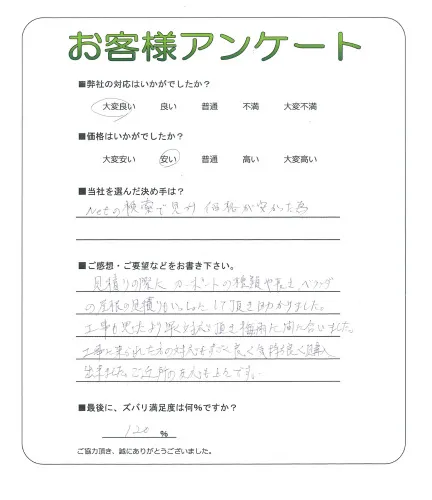 お客様アンケート
■弊社の対応はいかがでしたか？
大変良い 良い 普通 不満 大変不満
■価格はいかがでしたか？
大変安い 安い 普通 高い 大変高い
■当社を選んだ決め手は？
Netの検索で見て 価格が安かった為
■ご感想・ご要望などをお書き下さい。
見積りの際に カーポートの種類や長さ、ベランダ
の屋根の見積りもいっしょにして頂き助かりました。
工事も思ったより早く 頂き梅雨に間に合いました。
工事に来られた方の対応もすごく良く気持ち良く購入
出来ました。ご近所の
■最後に、ズバリ満足度は何％ですか？
120 ％
ご協力頂き、誠にありがとうございました。